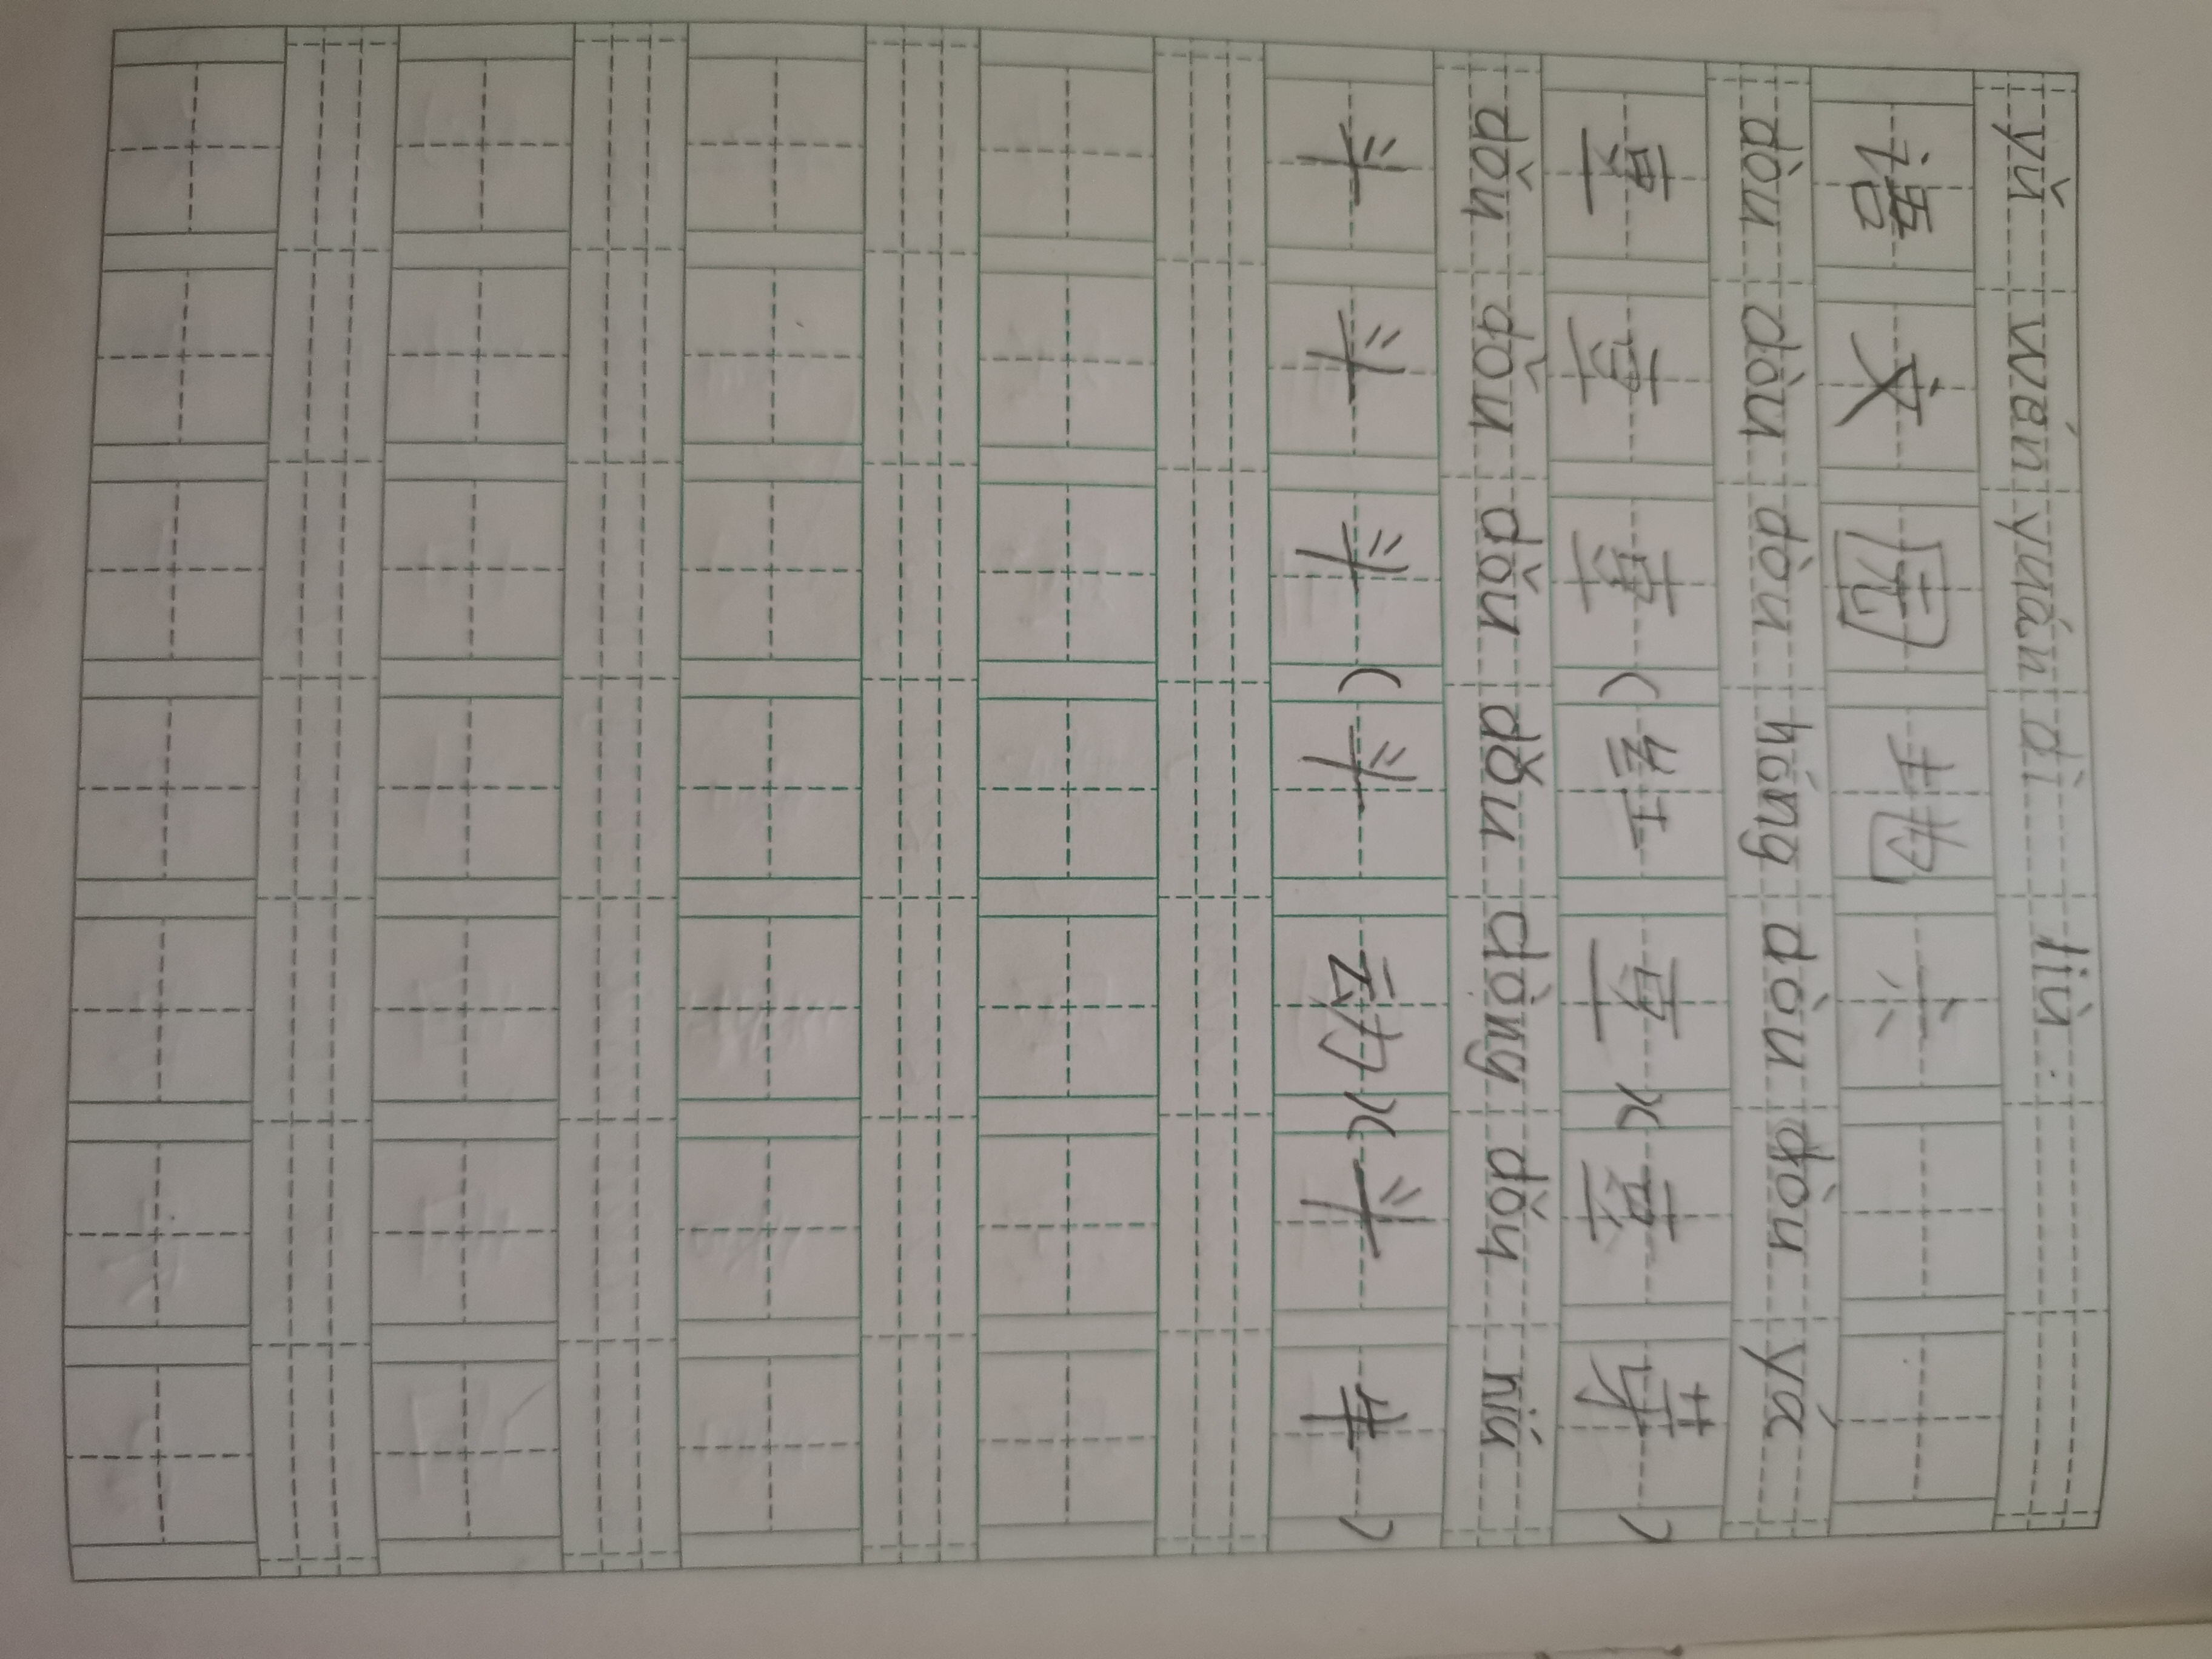 yǔ wén yuán dì liù
语文园地六
dòu dòu dòu hóng dòu dòu yá
豆豆豆(红豆)(豆芽)
dǒu dǒu dǒu dǒu dòng dǒu niú
斗斗斗(斗动)(斗牛)